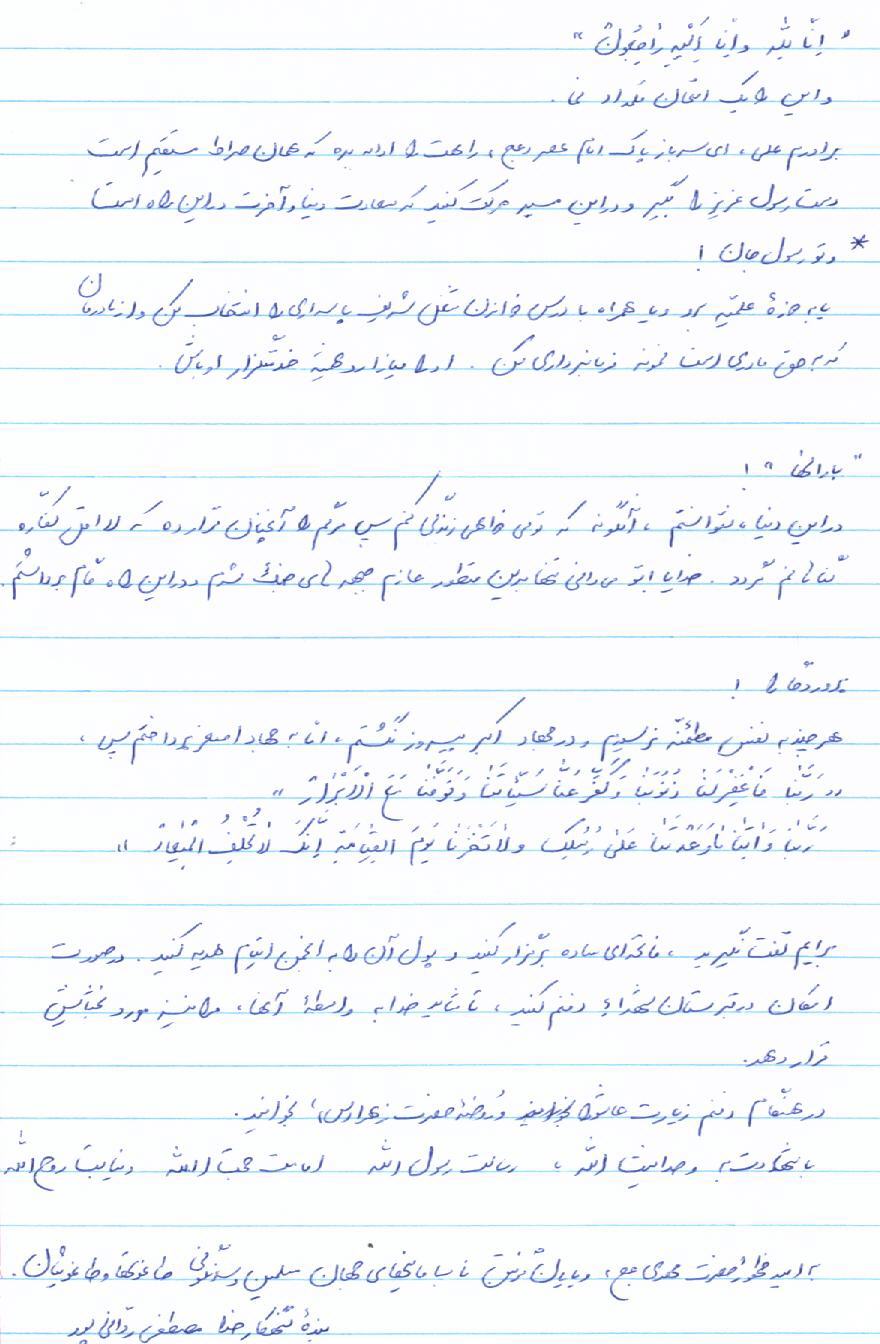 " اِنّا لِلّٰه وَاِنّا اِلَیْهِ رٰاجِعُونْ "
و این را یک امتحان قلمداد نما .
برادرم علی ، ای سرباز پاک امام عصر «عج» ، راهت را ادامه بده که همان صراط مستقیم است
دست رسول عزیز را بگیر و در این مسیر حرکت کنید که سعادت دنیا و آخرت در این راه است
* و تو رسول جان !
یا به حوزهٔ علمیّه برو و یا همراه با درس خواندن شغل شریف پاسداری را انتخاب بکن و از مادرمان
که به حق مادری است نمونه فرمانبرداری بکن . او را میازار و همیشه خدمتگزار او باش .
" بارالها " !
در این دنیا ، نتوانستم ، آنگونه که تو می خواهی زندگی کنم پس مرگم را آنچنان قرار ده که لااقل کفّاره
گناهانم گردد . خدایا ! تو می دانی تنها بدین منظور عازم جبهه های جنگ شدم و در این راه گام برداشتم .
پروردگارا !
هر چند به نفس مطمئنّه نرسیدم و در جهاد اکبر پیروز نگشتم ، امّا به جهاد اصغر پرداختم پس ،
" رَبَّنٰا فَاغْفِرْلَنٰا ذُنُوبَنٰا وَ کَفِّرْ عَنّٰا سَیِّئٰاتِنٰا وَ تَوَفَّنٰا مَعَ الْاَبْرٰارْ "
رَبَّنٰا وَ اٰتِنٰا مٰا وَعَدْتَنٰا عَلیٰ رُسُلِکَ وَلٰا تُخْزِنٰا یَوْمَ القِیٰامَةِ اِنَّکَ لٰا تُخْلِفُ الْمیٖعٰادْ "
برایم هفت نگیرید ، فاتحه‌ای ساده برگزار کنید و پول آن را به انجمن ایتام هدیه کنید . در صورت
امکان در قبرستان شهداء دفنم کنید ، تا شاید خدا به واسطهٔ آنها ، مرا نیز مورد بخشایش
قرار دهد .
در هنگام دفنم زیارت عاشورا بخوانید و روضهٔ حضرت زهرا (س) بخوانید .
با شهادت به وحدانیت اللّه ، رسالت رسول اللّه امامت حجت اللّه و نیابت روح اللّه
به امید ظهور حضرت مهدی عج ، و پایان گرفتن نابسامانیهای جهان مسلمین و سرنگونی طاغوتها و طاغوتیان .
بندهٔ گنهکار خدا مصطفی ردانی پور